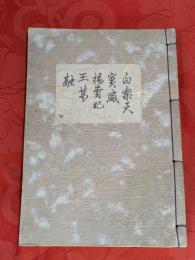 白樂天
寞盛
楊貴妃
玉葛
融